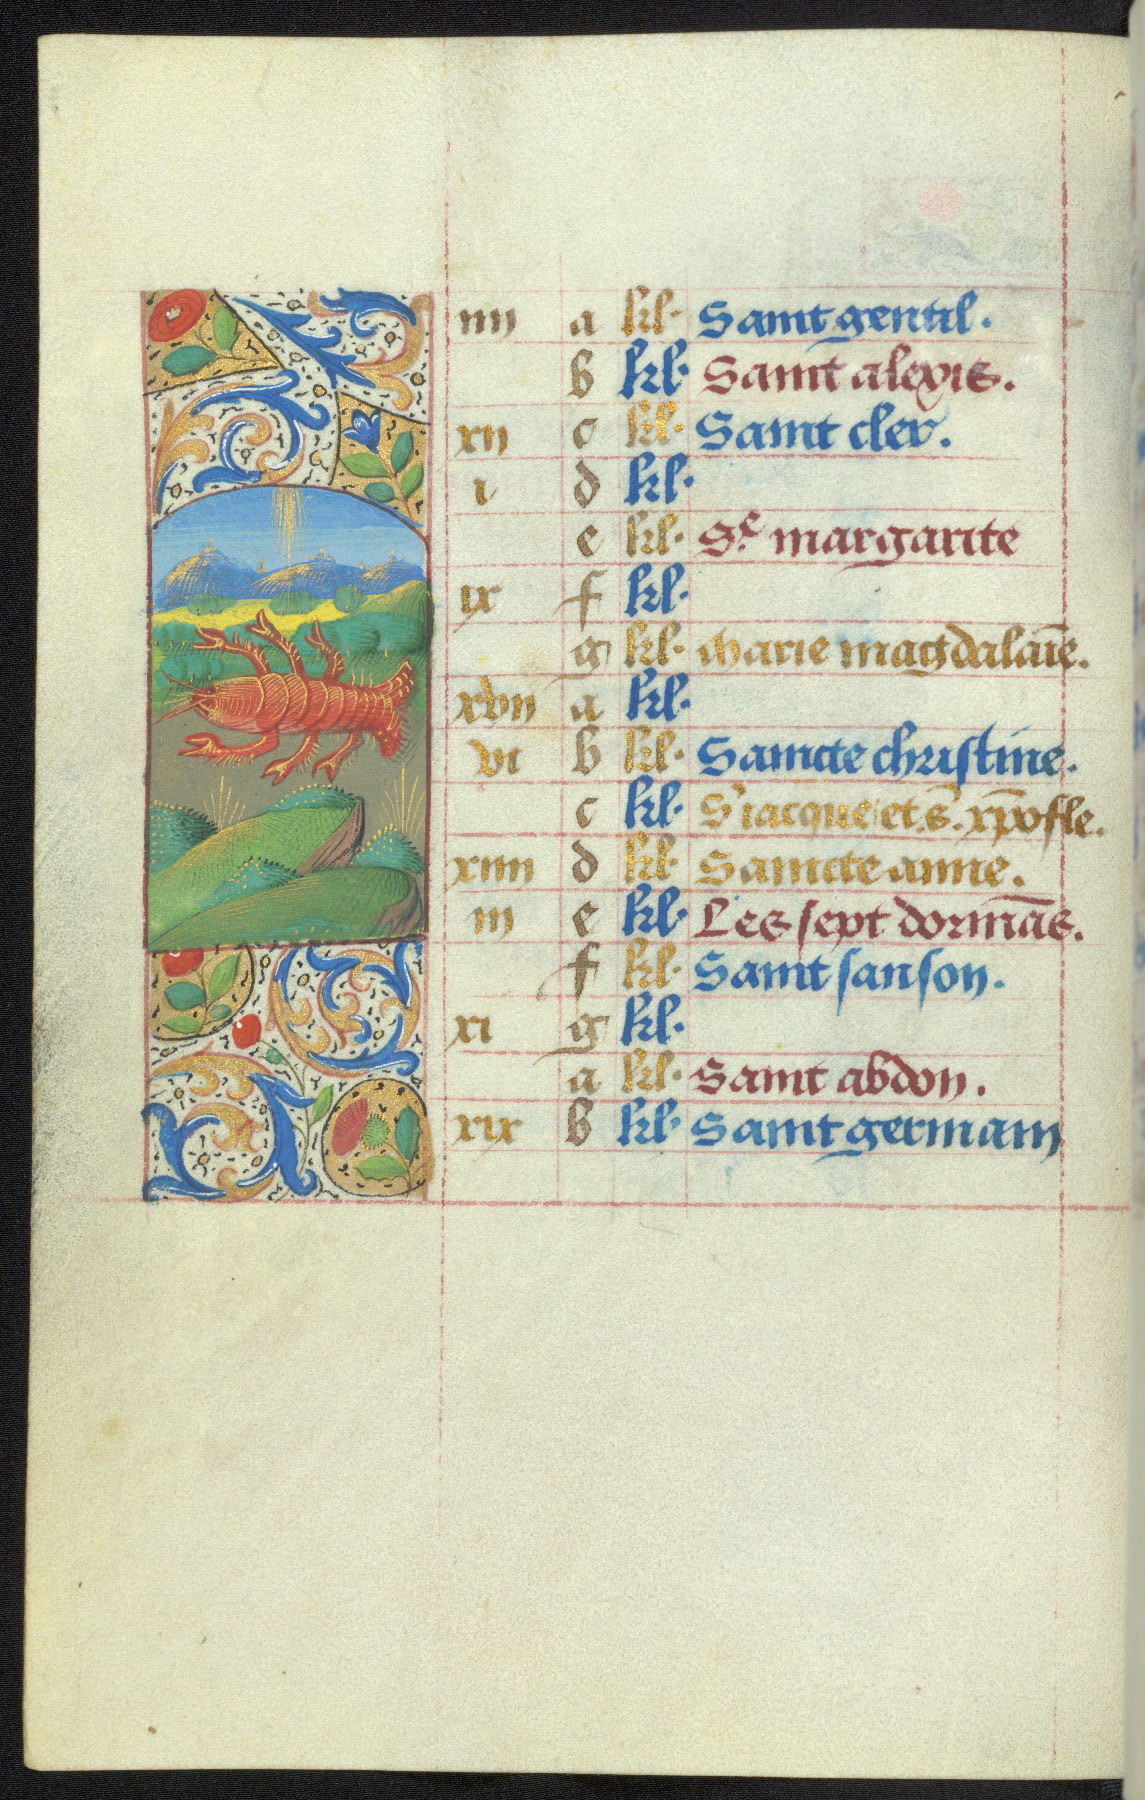 iiii a kl· Saint gentil.
b kl· Saint alexis.
xii c kl· Saint cler.
i d kl·
e kl· Sᵉ. margarite
ix f kl·
g kl· Marie magdalaīe.
xvii a kl·
vi b kl· Saincte christine.
c kl· Sʳ iacque et. s̄. xp̄ofle.
xiiii d kl· Saincte anne.
iii e kl· Les sept dormās.
f kl· Saint sanson.
xi g kl·
a kl· Saint abdon.
xix b kl· Saint germain